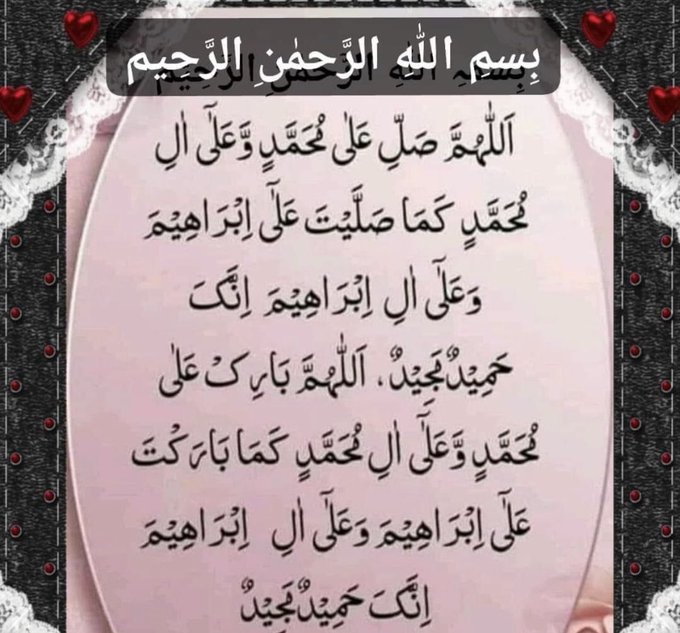 بِسمِ اللهِ الرَّحمٰنِ الرَّحِيم
اَللّٰهُمَّ صَلِّ عَلٰى مُحَمَّدٍ وَّعَلٰٓى اٰلِ
مُحَمَّدٍ كَمَا صَلَّيْتَ عَلٰٓى اِبْرَاهِيْمَ
وَعَلٰٓى اٰلِ اِبْرَاهِيْمَ اِنَّكَ
حَمِيْدٌ مَّجِيْدٌ، اَللّٰهُمَّ بَارِكْ عَلٰى
مُحَمَّدٍ وَّعَلٰٓى اٰلِ مُحَمَّدٍ كَمَا بَارَكْتَ
عَلٰٓى اِبْرَاهِيْمَ وَعَلٰٓى اٰلِ اِبْرَاهِيْمَ
اِنَّكَ حَمِيْدٌ مَّجِيْدٌ